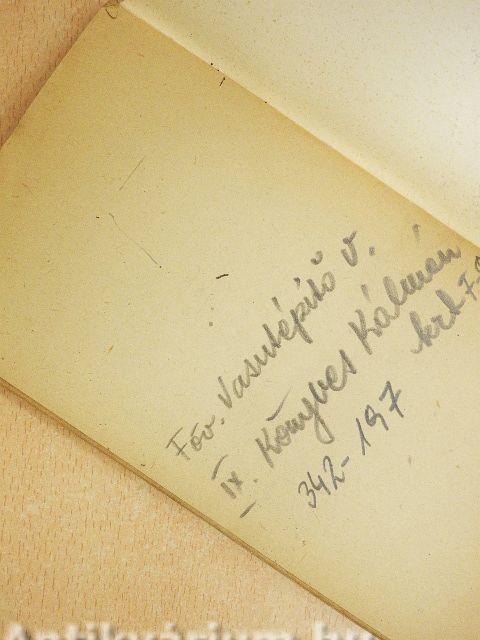 Föv. Vasutépítő V.
IX. Könyves Kálmán
krt 7-
342-197
Antikvárium.hu